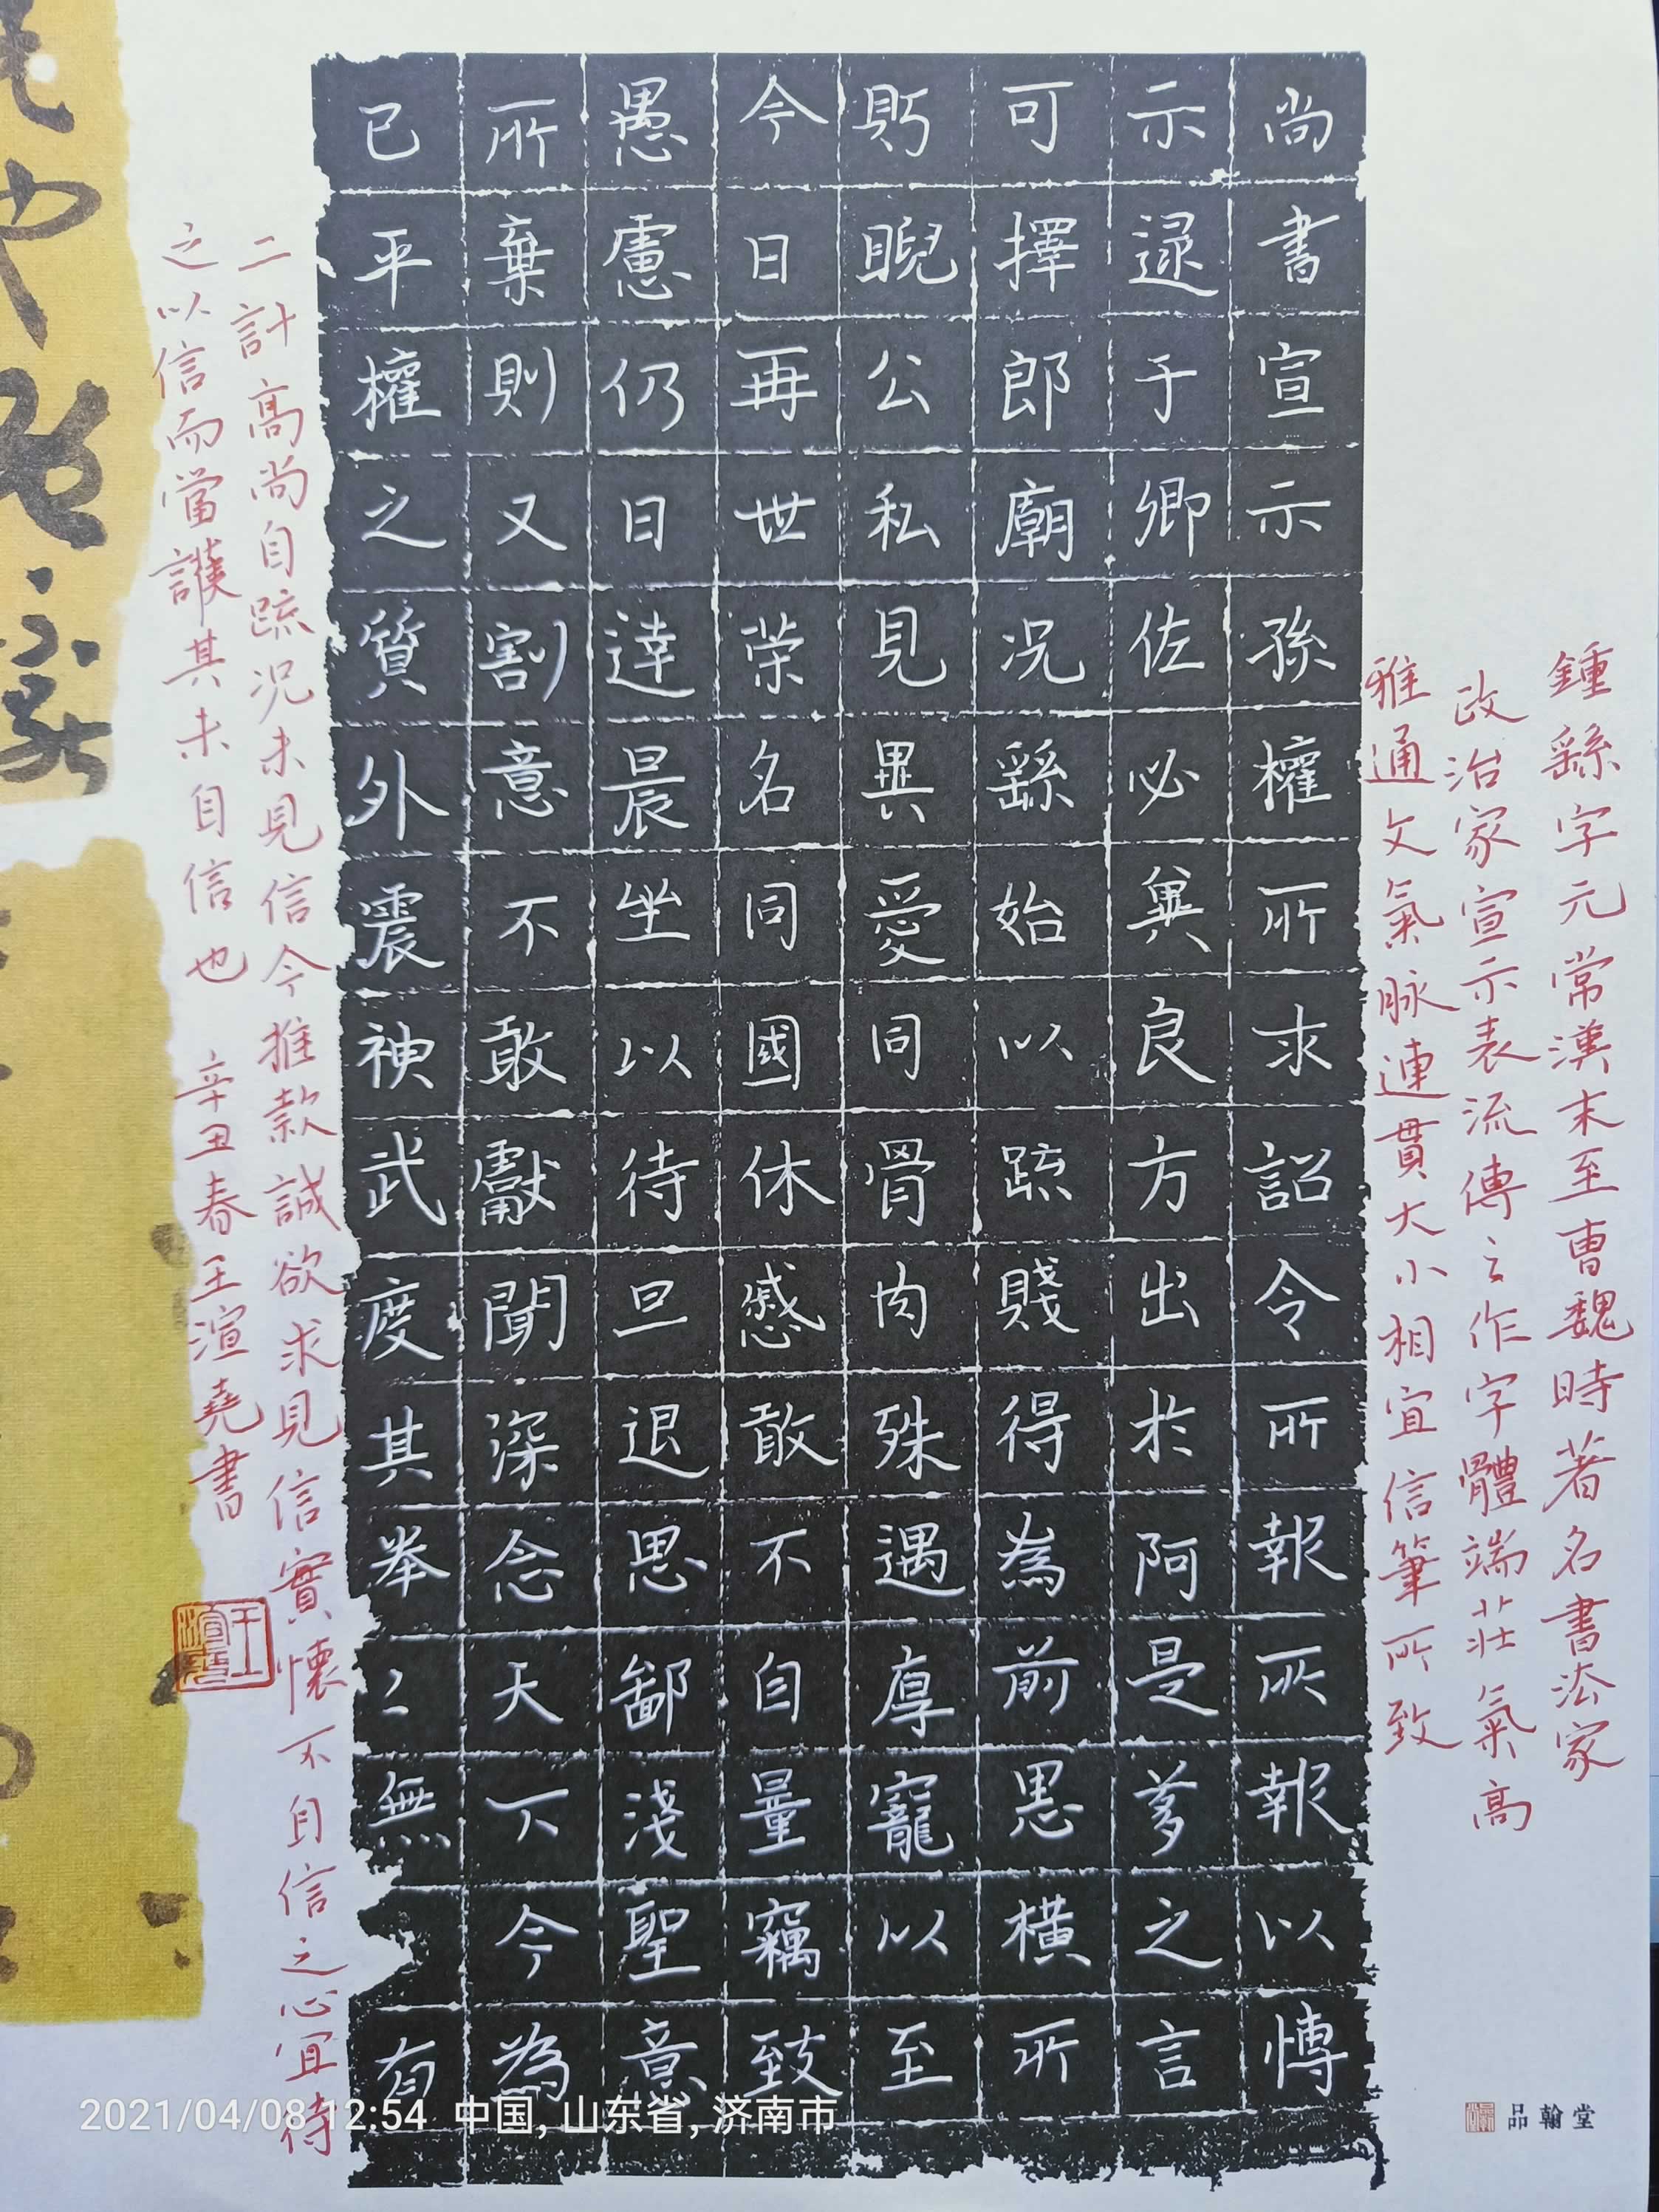 鍾繇字元常漢末至曹魏時著名書法家
政治家宣示表流傳之作字體端莊氣高
雅通文氣脉連貫大小相宜信筆所致
尚書宣示孫權所求詔令所報所報以愽
示逯于卿佐必兾良方出於阿是芻之言
可擇郎廟况繇始以疏賤得為前恩横所
眄睨公私見異愛同骨肉殊遇厚寵以至
今日再世荣名同國休慼敢不自量竊致
愚慮仍日達晨坐以待旦退思鄙淺聖意
所棄則又割意不敢獻聞深念天下今為
已平權之質外震神武度其拳〻無有
二計高尚自疏况未見信今推款誠欲求見信實懷不自信之心宜待
之以信而當護其未自信也 辛丑春王渲堯書
品翰堂
2021/04/08 12:54 中国, 山东省, 济南市